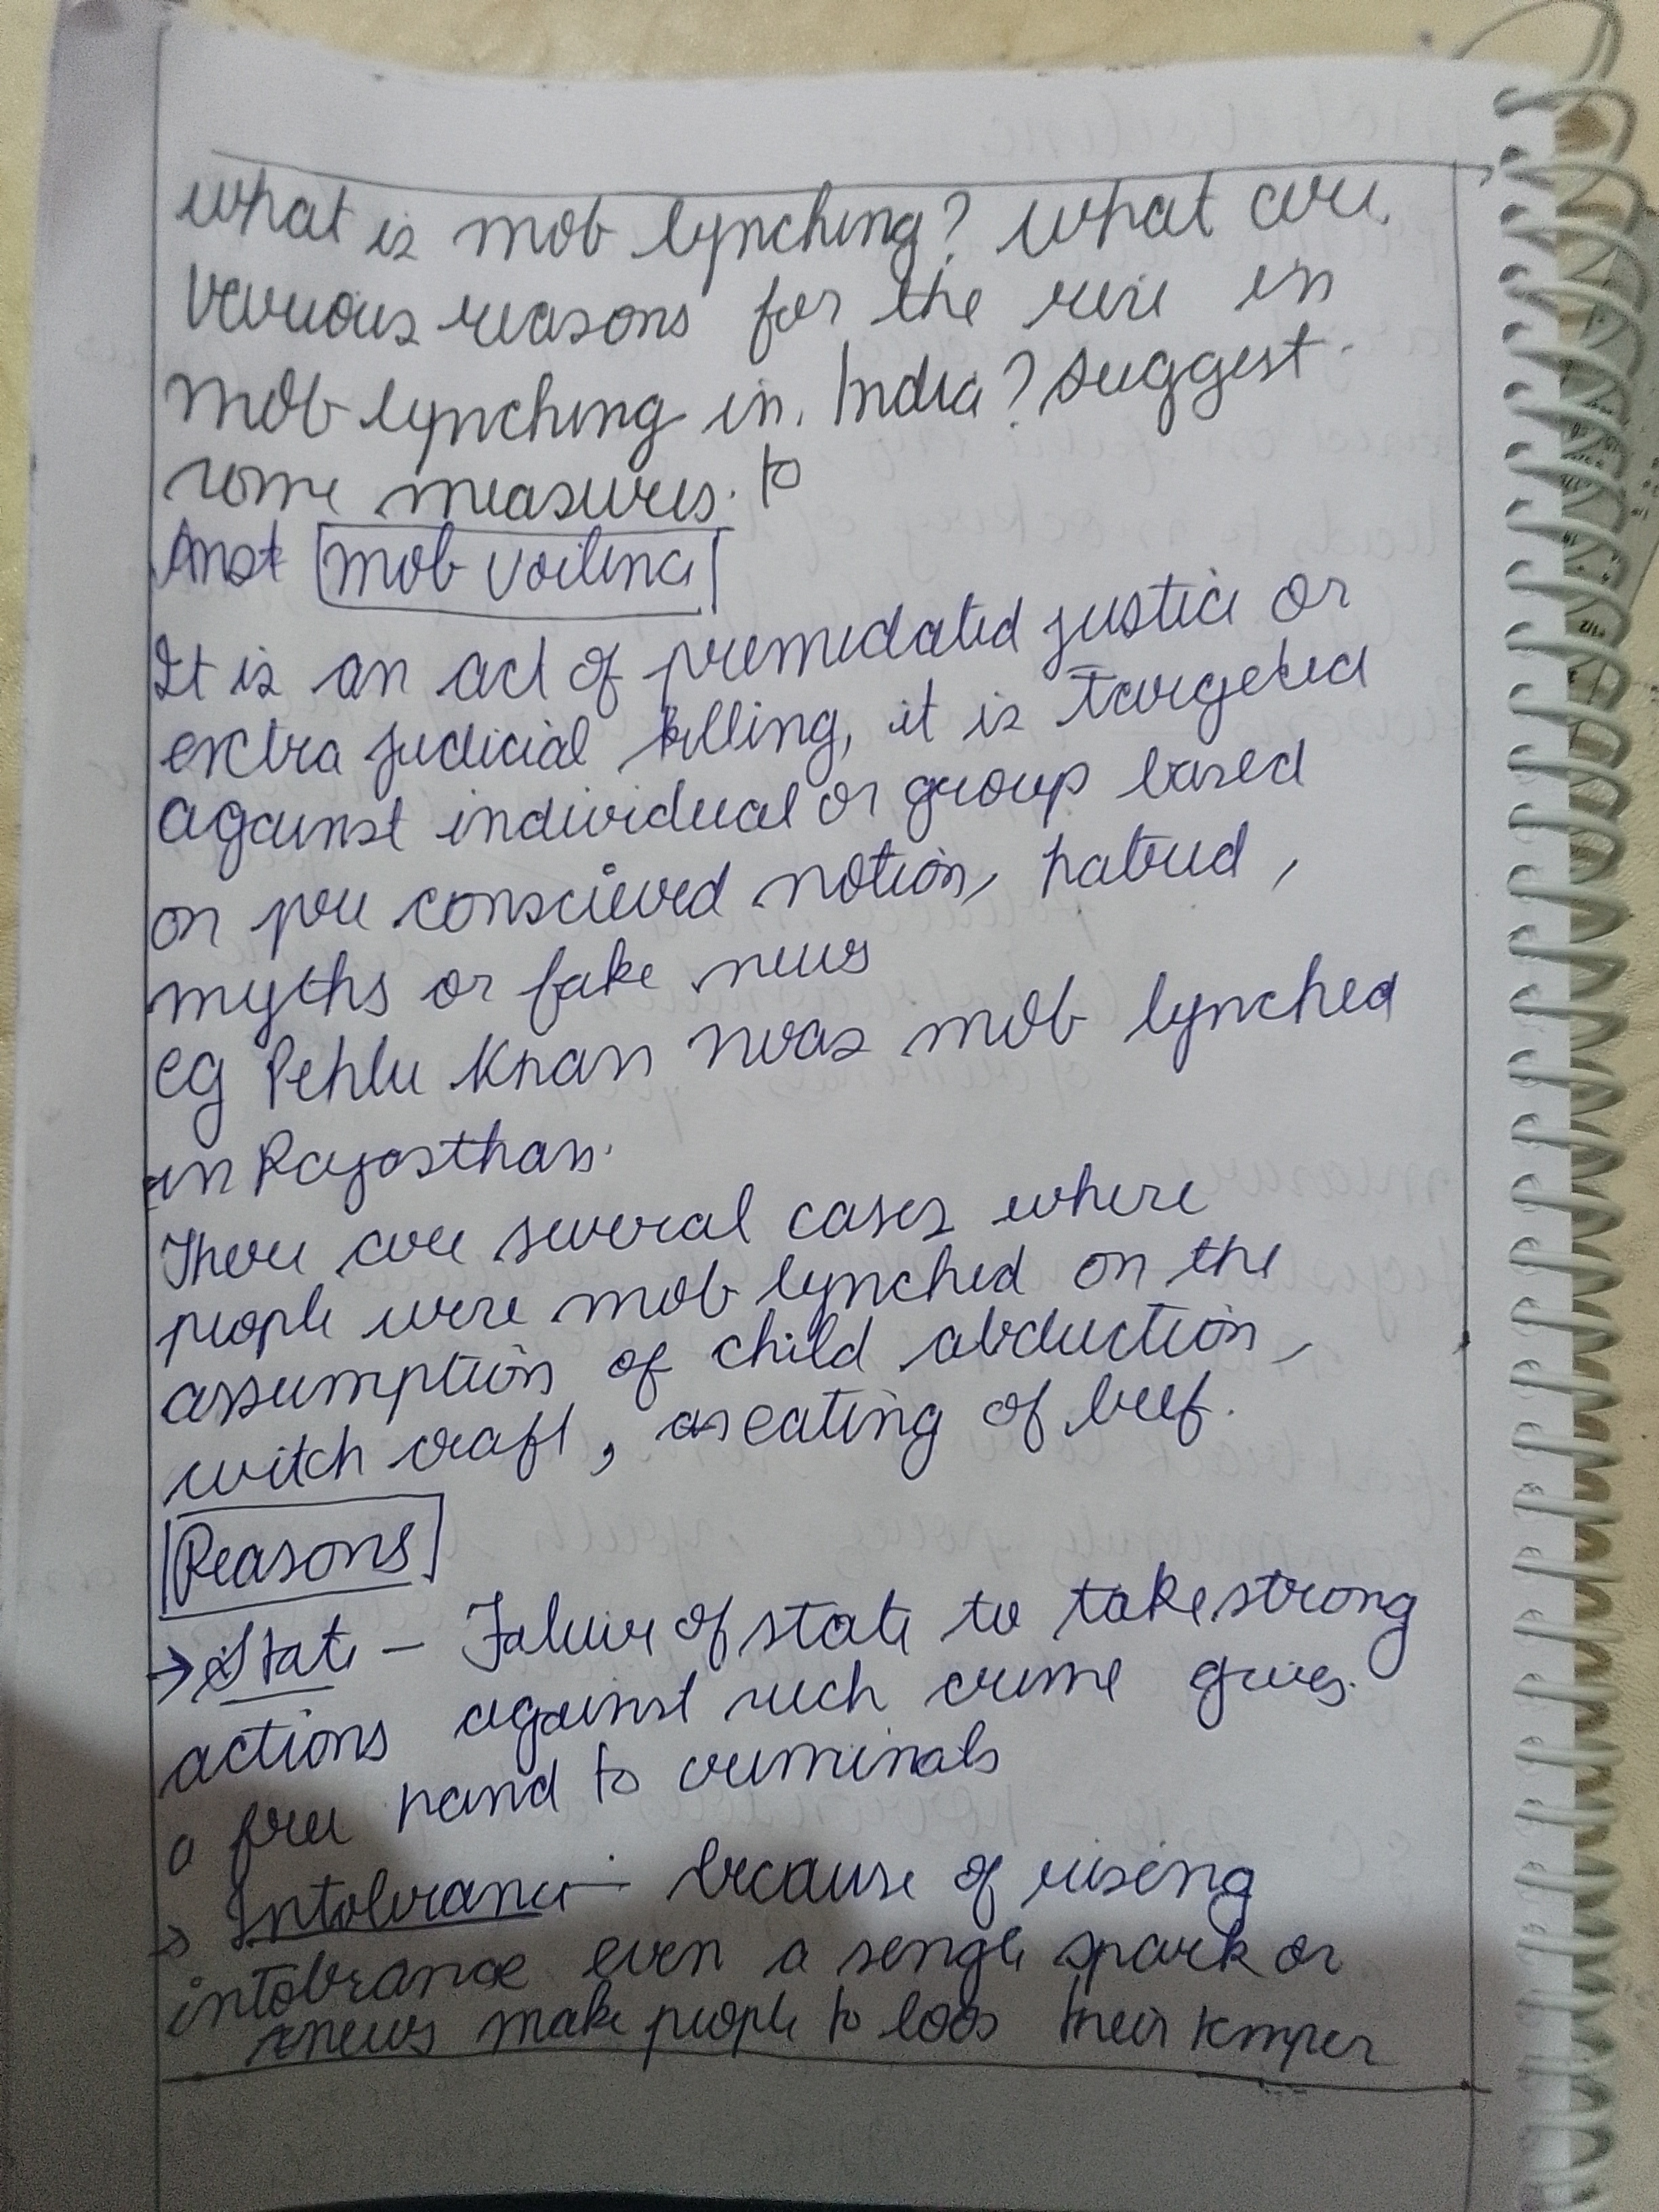 what is mob lynching? what are
various reasons for the rise in
mob lynching in India? suggest
some measures. to
Ans
mob voilence
It is an act of premedated justice or
extra judicial killing, it is targeted
against individual or group based
on pre conscieved notion, hatred,
myths or fake news
eg Pehlu Khan was mob lynched
in Rajasthan.
There are several cases where
people were mob lynched on the
assumption of child abduction,
witch craft, eating of beef.
Reasons
→ State - Failure of state to take strong
actions against such crime gives
a free hand to criminals
→ Intolerance - because of rising
intolerance even a single spark or
news make people to loos their temper